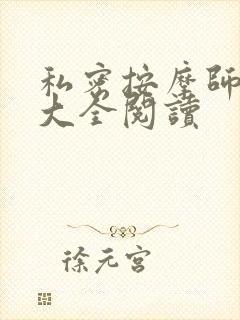 私密按摩師
大全閱讀
徐元宮